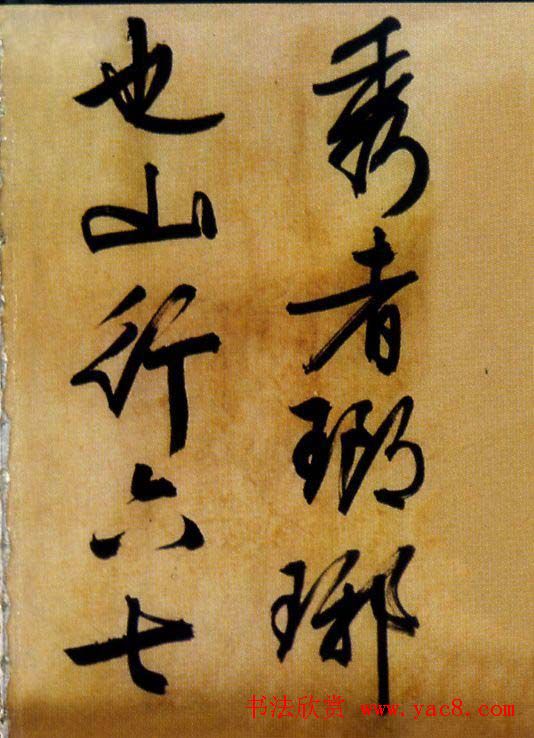 秀者瑯琊
也山行六七
书法欣赏 www.yac8.com